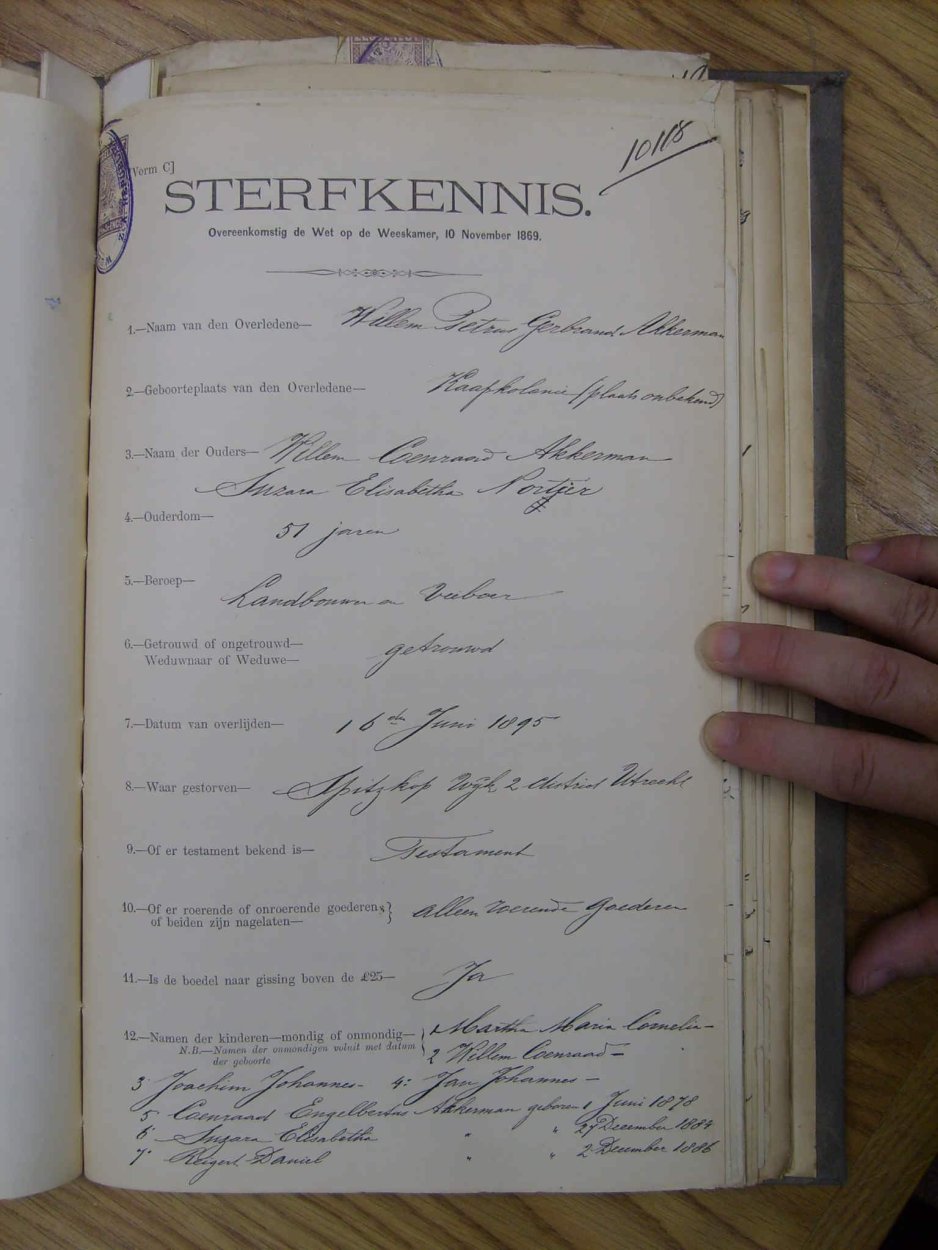 10118
Vorm C]
STERFKENNIS.
Overeenkomstig de Wet op de Weeskamer, 10 November 1869.
1.—Naam van den Overledene— Willem Petrus Gerbrand Akkerman
2.—Geboorteplaats van den Overledene— Kaapkolonie (plaats onbekend)
3.—Naam der Ouders— Willem Coenraad Akkerman
Suzara Elisabetha Nortjer
4.—Ouderdom— 51 jaren
5.—Beroep— Landbouwer en Veeboer
6.—Getrouwd of ongetrouwd— getrouwd
Weduwnaar of Weduwe—
7.—Datum van overlijden— 16den Juni 1895
8.—Waar gestorven— Spitzkop Wyk 2 district Utrecht
9.—Of er testament bekend is— Testament
10.—Of er roerende of onroerende goederen, } alleen roerende Goederen
of beiden zijn nagelaten—
11.—Is de boedel naar gissing boven de £25— Ja
12.—Namen der kinderen—mondig of onmondig— } 1 Martha Maria Cornelia—
N.B.—Namen der onmondigen voluit met datum 2 Willem Coenraad—
der geboorte
3 Joachim Johannes— 4: Jan Johannes—
5 Coenraad Engelbertus Akkerman geboren 1 Juni 1878
6 Suzara Elisabetha " " 27 December 1884
7 Daniel " " 2 December 1886